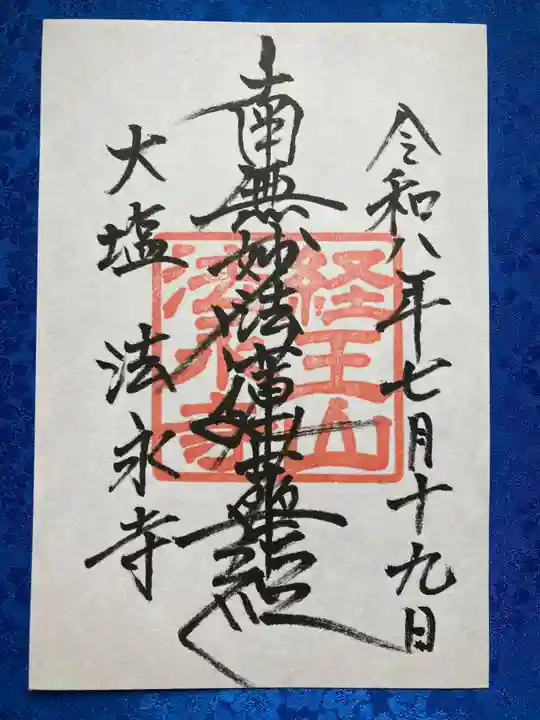 令和八年七月十九日
南無妙法蓮華経
経王山
法永寺
大塩 法永寺